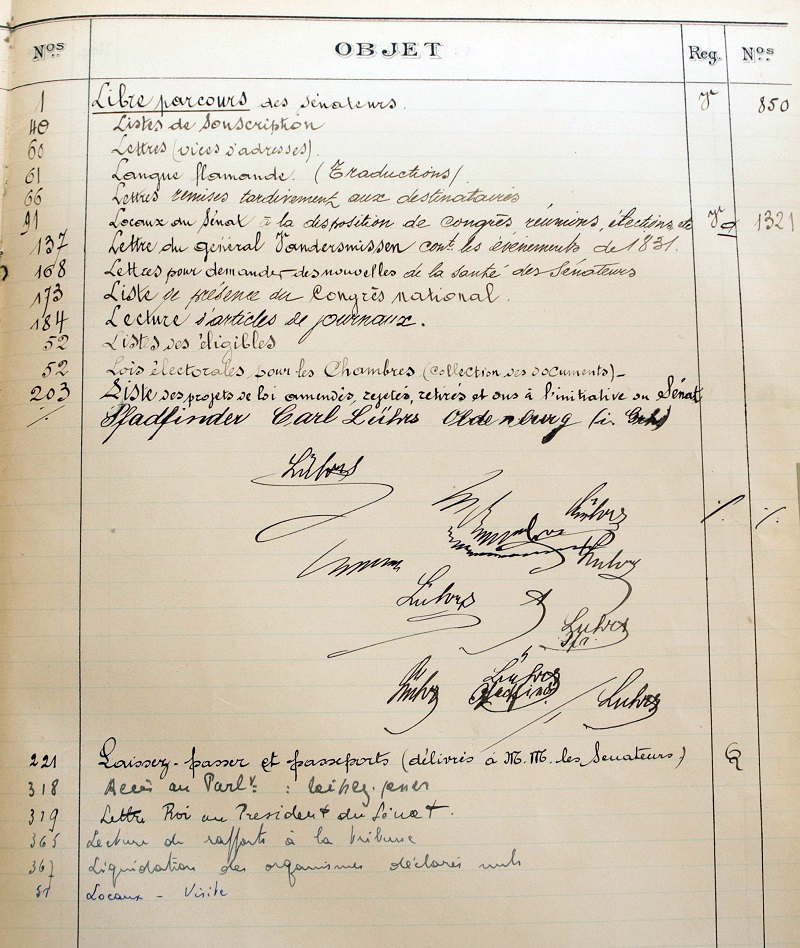 Nos OBJET Reg. Nos
1 Libre parcours des Sénateurs. V 850
40 Listes de Souscription
60 Lettres (vices d'adresses).
61 Langue flamande. (Traductions)
66 Lettres remises tardivement aux destinataires
91 Locaux du Sénat à la disposition de congrès réunions, élections, etc V a 1321
137 Lettre du général Vandersmissen conc.t les événements de 1831.
168 Lettres pour demander des nouvelles de la santé des Sénateurs
173 Liste de présence du Congrès national.
184 Lecture d'articles de journaux.
52 Listes des éligibles
52 Lois électorales pour les Chambres (collection des documents) –
203 Liste des projets de loi amendés, rejetés, retirés et dus à l'initiative du Sénat
./. Pfadfinder Carl Lührs Oldenburg (i. Grh)
Lührs
Lührs
./. ./.
Lührs
Lührs
Lührs
Lührs
Lührs
Lührs
221 Laissez-passer et passeports (délivrés à M.M. les Senateurs)
318 Accès au Parl.t : laissez-passer
319 Lettre Roi au President du Sénat.
365 Lecture de rapports à la tribune
367 Liquidation des organismes déclarés nuls
51 Locaux – Visite